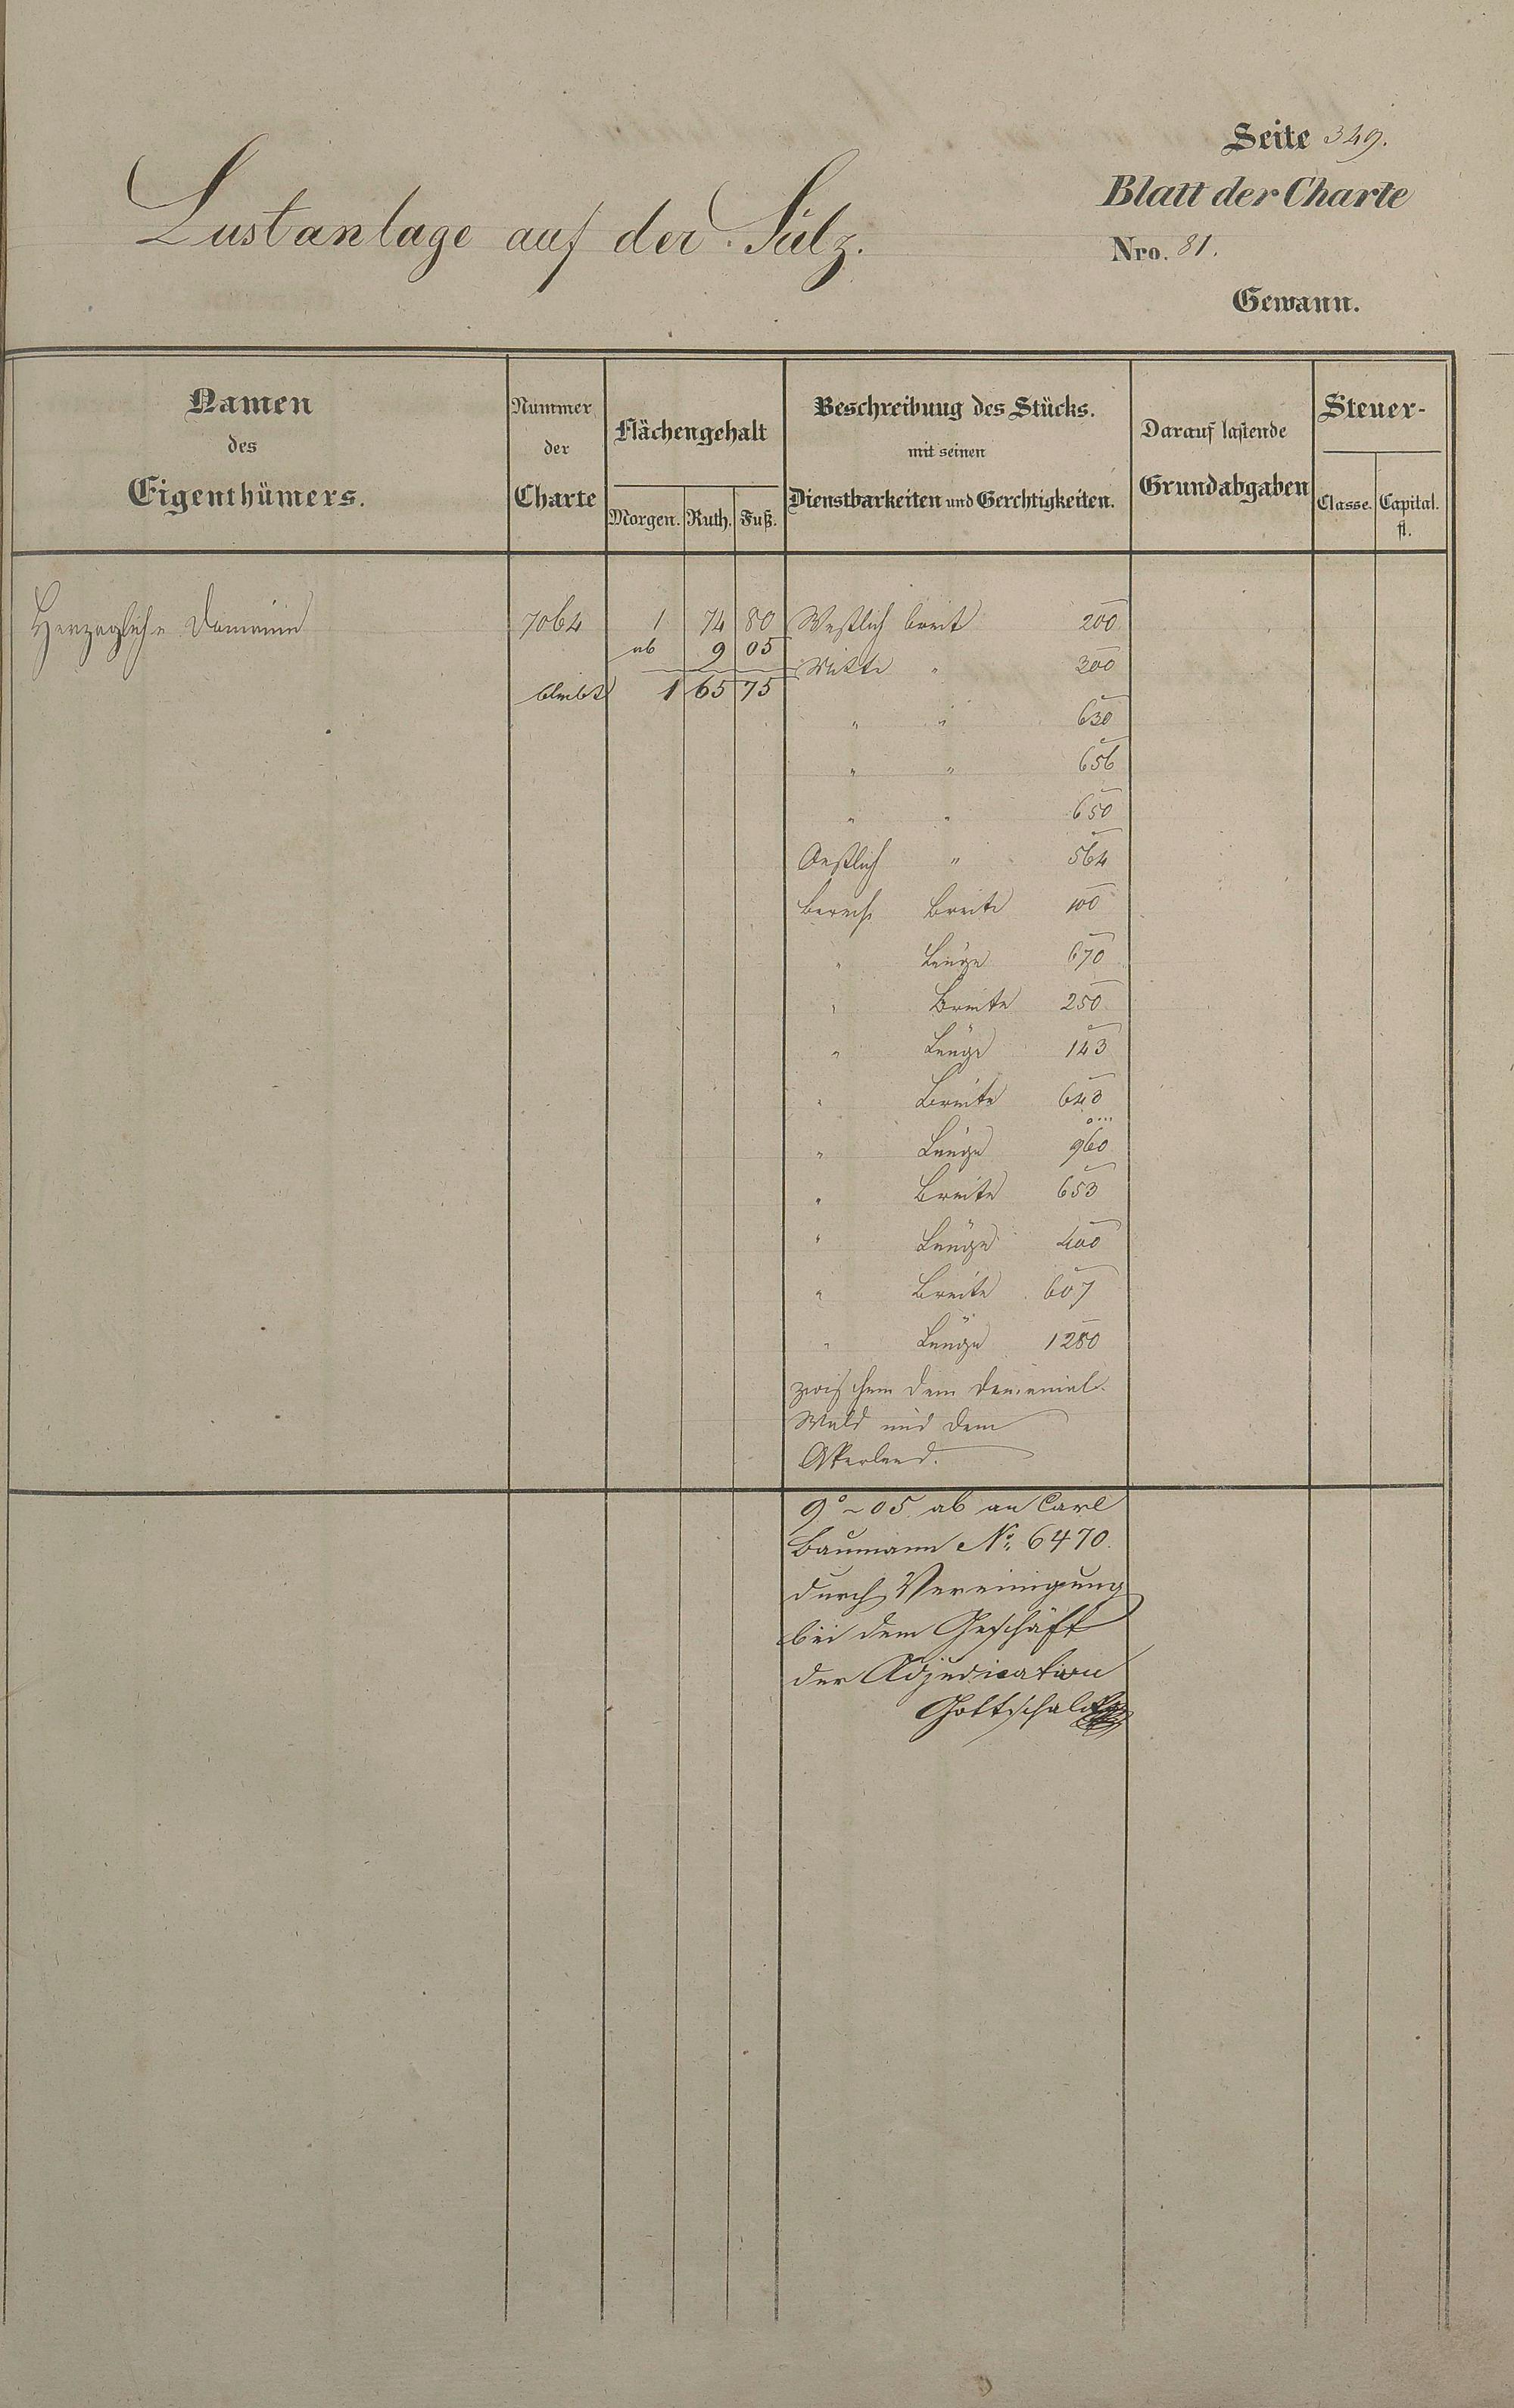 Seite 349.
Blatt der Charte
Lustanlage auf der Sülz.
Nro. 81.
Gewann.
Namen des Eigenthümers.
Nummer der Charte
Flächengehalt
Morgen. Ruth. Fuß.
Beschreibung des Stücks.
mit seinen
Dienstbarkeiten und Gerchtigkeiten.
Darauf lastende
Grundabgaben
Steuer-
Classe. Capital.
fl.
Herzogliche Domaine 7064 1 74 80 Westlich breit 200
ab 9 05
Mitte " 300
bleibt 1 65 75
" " 630
" " 656
" " 650
Oestlich " 564
Breite 100
" Länge 670
" Breite 250
" Länge 143
" Breite 643
" Länge 960
" Breite 653
" Länge 400
" Breite 607
" Länge 1280
zwischen dem Domanial-
Wald und dem
Ackerland.
9° ~ 05 ab an Carl
Baumann No. 6470.
durch Vereinigung
bei dem Geschäft
der Adjudication
Gottschalk